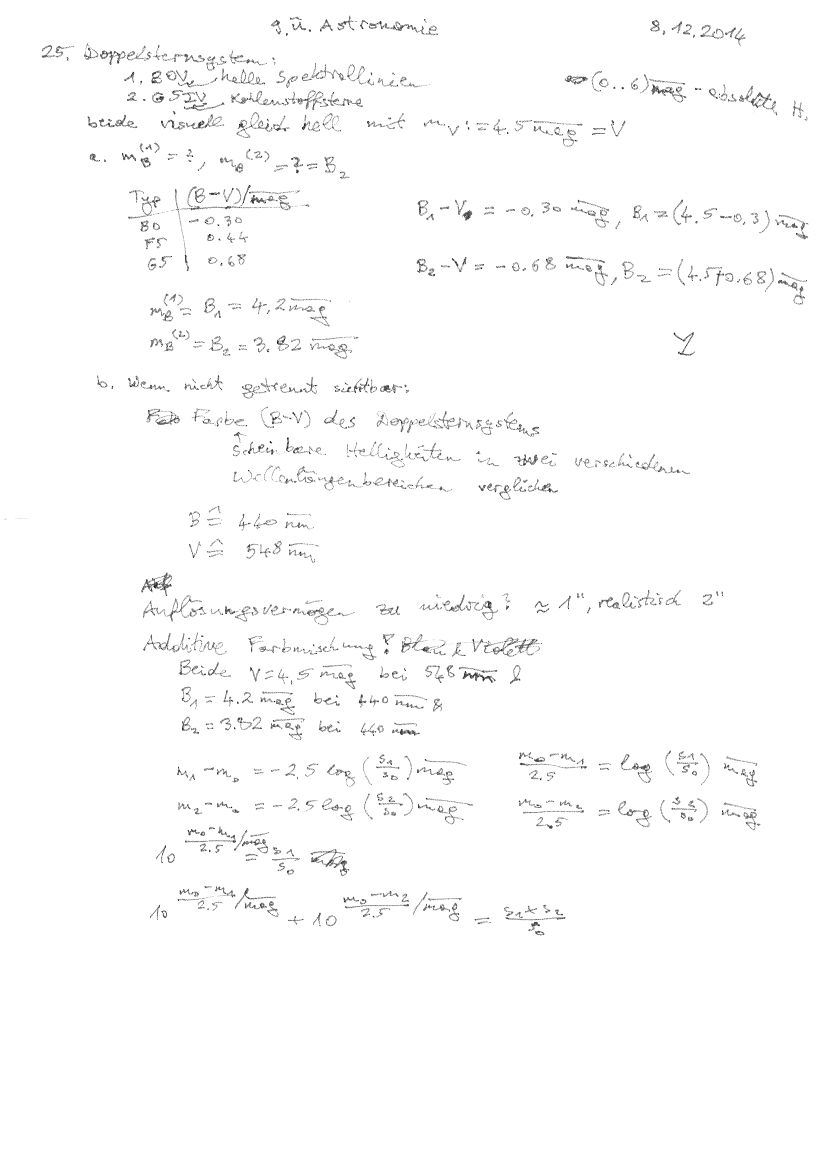 9. Ü. Astronomie 8.12.2014
25. Doppelsternsystem:
1. B0Ve helle Spektrallinien
2. G5IV Kohlenstoffsterne
(0..6) mag - absolute H.
beide visuell gleich hell mit m_V := 4.5 mag = V
a. m_B^(1) = ?, m_B^(2) = ? = B_2
Typ | (B-V)/mag
B0 | -0.30
F5 | 0.44
G5 | 0.68
B_1 - V = -0.30 mag, B_1 = (4.5-0.3) mag
B_2 - V = -0.68 mag, B_2 = (4.5+0.68) mag
m_B^(1) = B_1 = 4,2 mag
m_B^(2) = B_2 = 3.82 mag
b. Wenn nicht getrennt sichtbar:
Farbe (B-V) des Doppelsternsystems
↑
scheinbare Helligkeiten in zwei verschiedenen
Wellenlängenbereichen verglichen
B ≙ 440 nm
V ≙ 548 nm
Auflösungsvermögen zu niedrig? ≈ 1", realistisch 2"
Additive Farbmischung? Blau & Violett
Beide V = 4,5 mag bei 548 nm &
B_1 = 4.2 mag bei 440 nm &
B_2 = 3.82 mag bei 440 nm
m_1 - m_0 = -2,5 log (s_1/s_0) mag (m_0 - m_1)/2.5 = log (s_1/s_0) mag
m_2 - m_0 = -2.5 log (s_2/s_0) mag (m_0 - m_2)/2.5 = log (s_2/s_0) mag
10^((m_0 - m_1)/2.5 /mag) = s_1/s_0
10^((m_0 - m_1)/2.5 /mag) + 10^((m_0 - m_2)/2.5 /mag) = (s_1 + s_2)/s_0